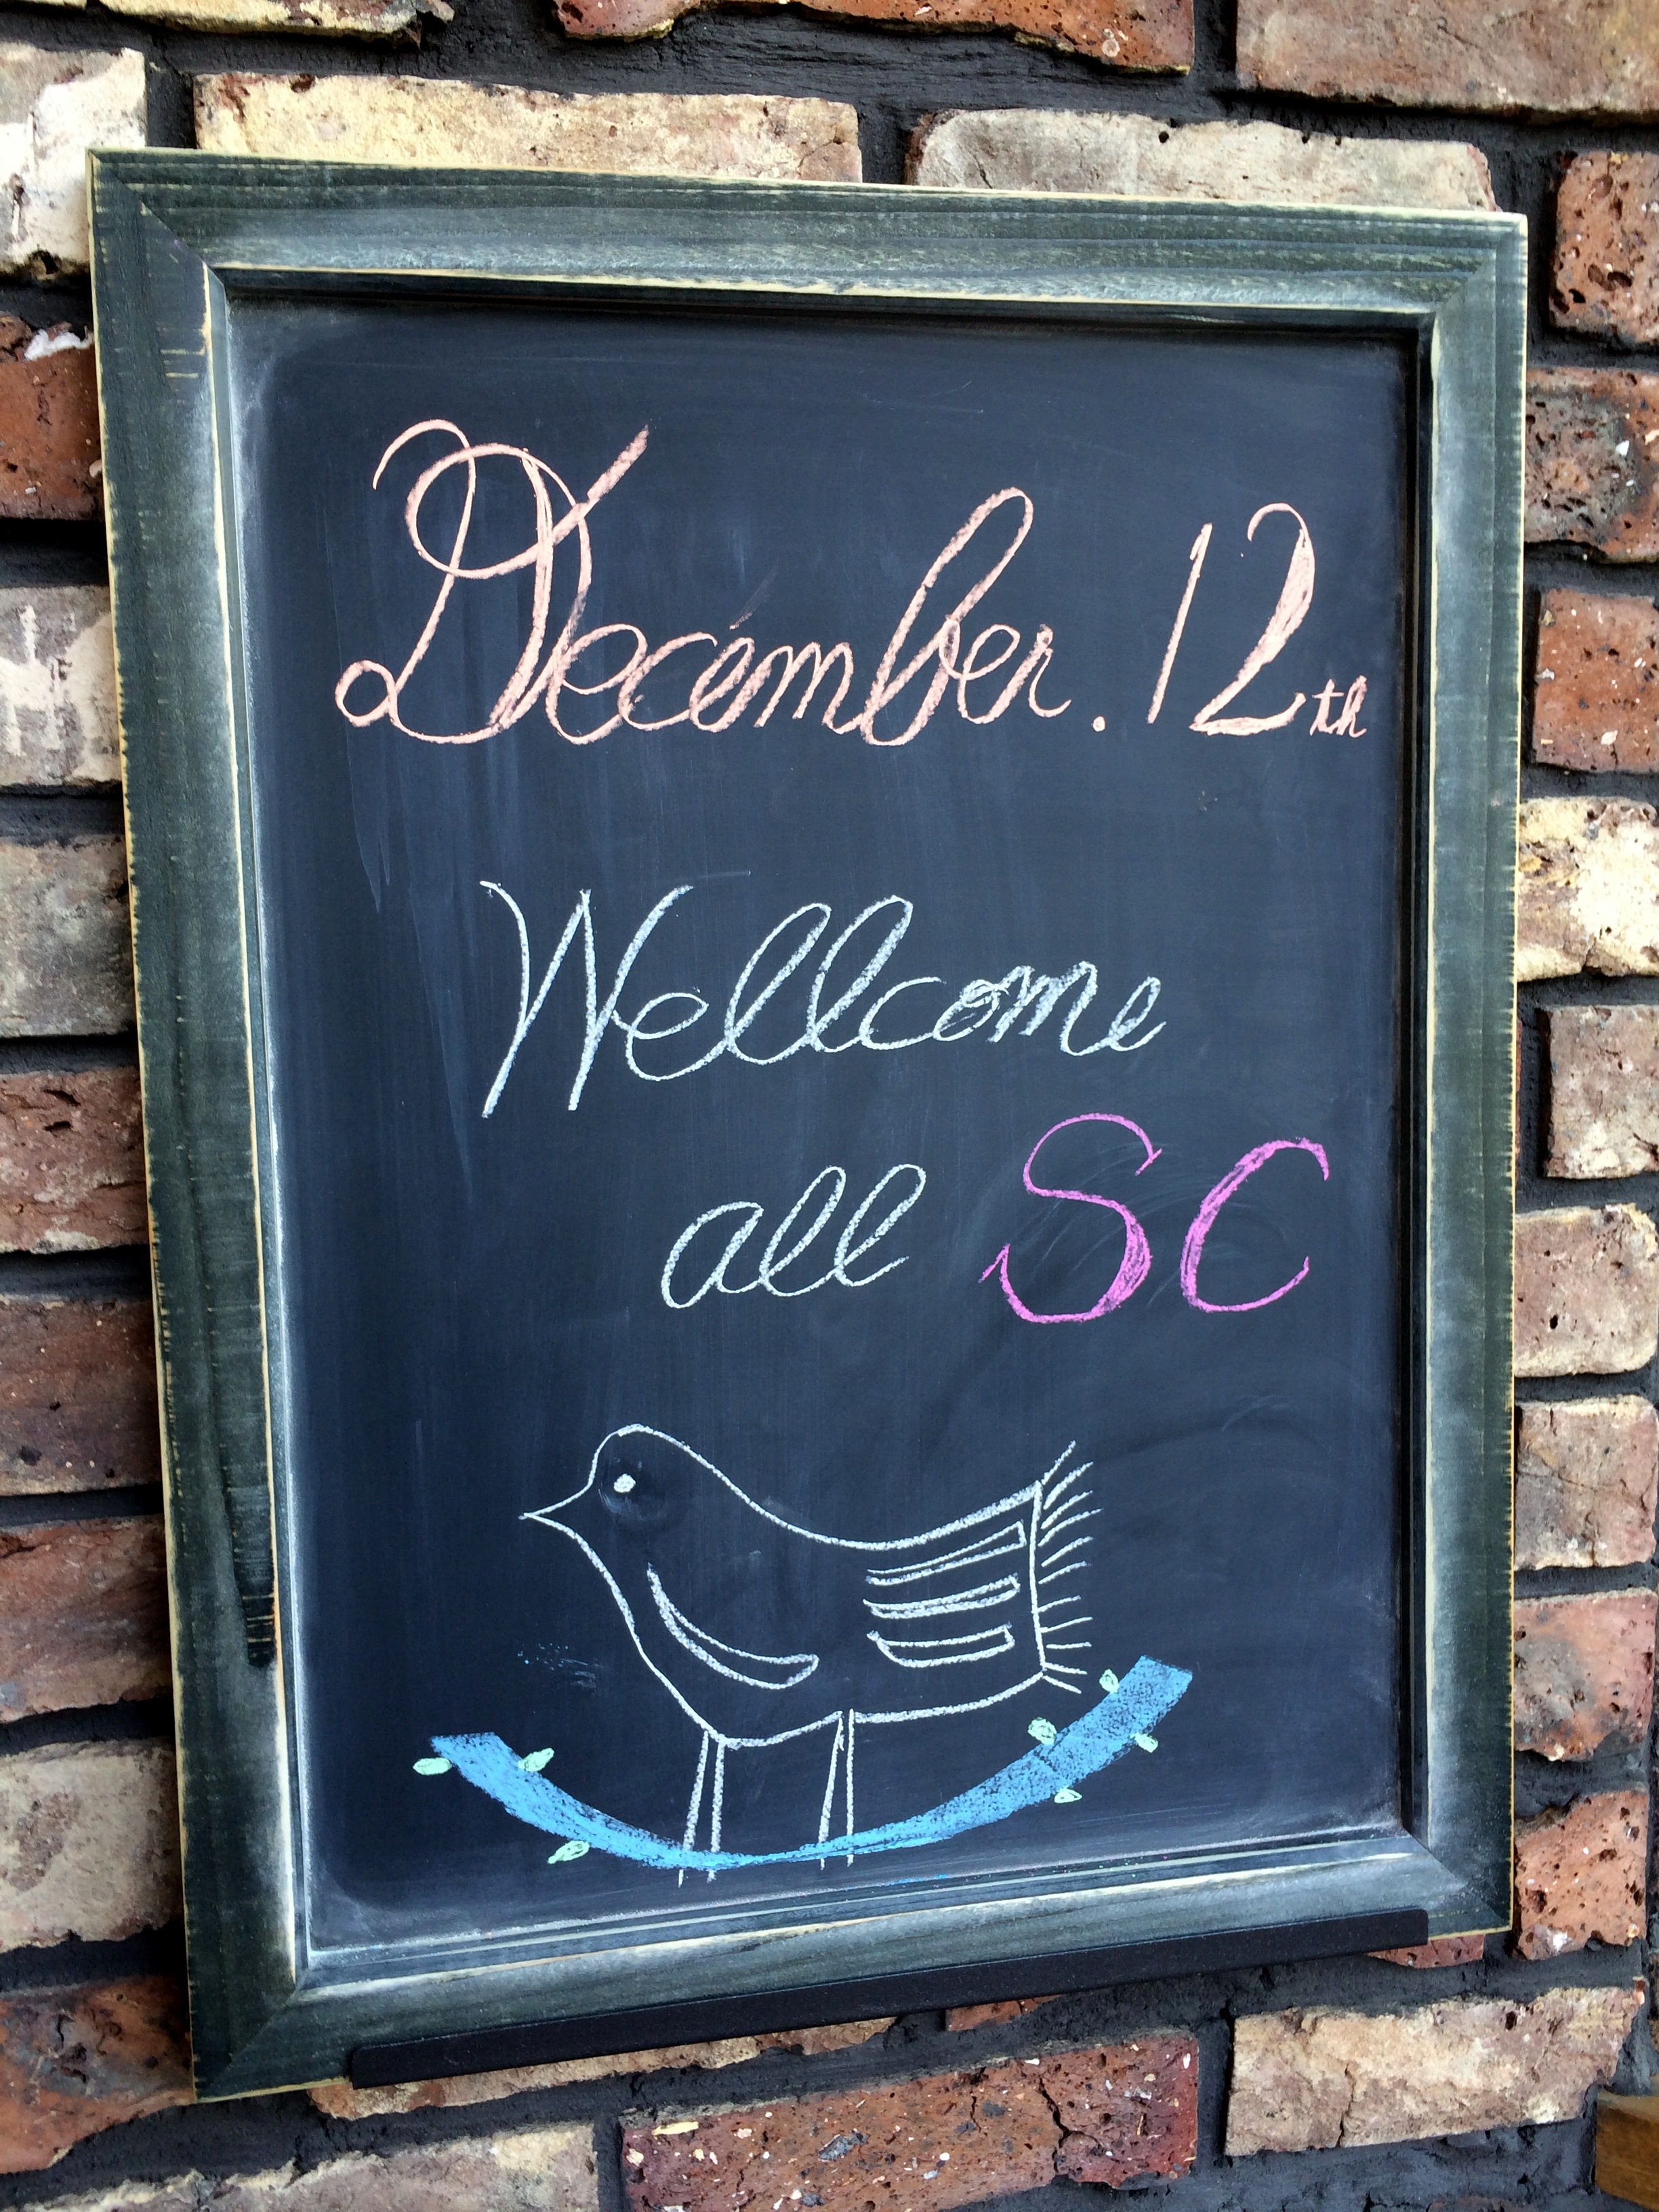 December. 12th
Wellcome
all SC